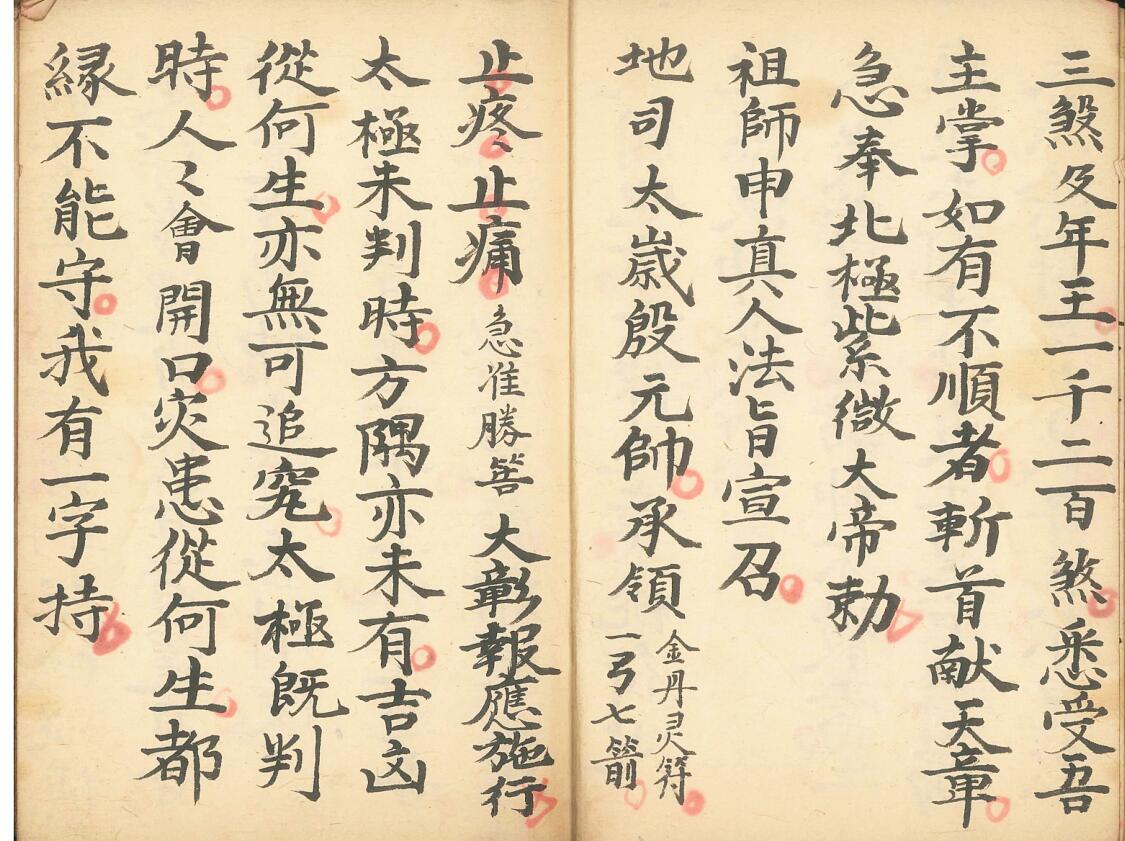 三煞及年王一千二百煞悉受吾
主掌如有不順者斬首献天章
急奉北極紫微大帝勅
祖師申真人法旨宣召
地司太歲殷元帥承領
金丹灵符
一弓七箭
止疼止痛急准勝咎大彰報應施行
太極未判時方隅亦未有吉凶
從何生亦無可追究太極既判
時人々會開口灾患從何生都
縁不能守我有一字持